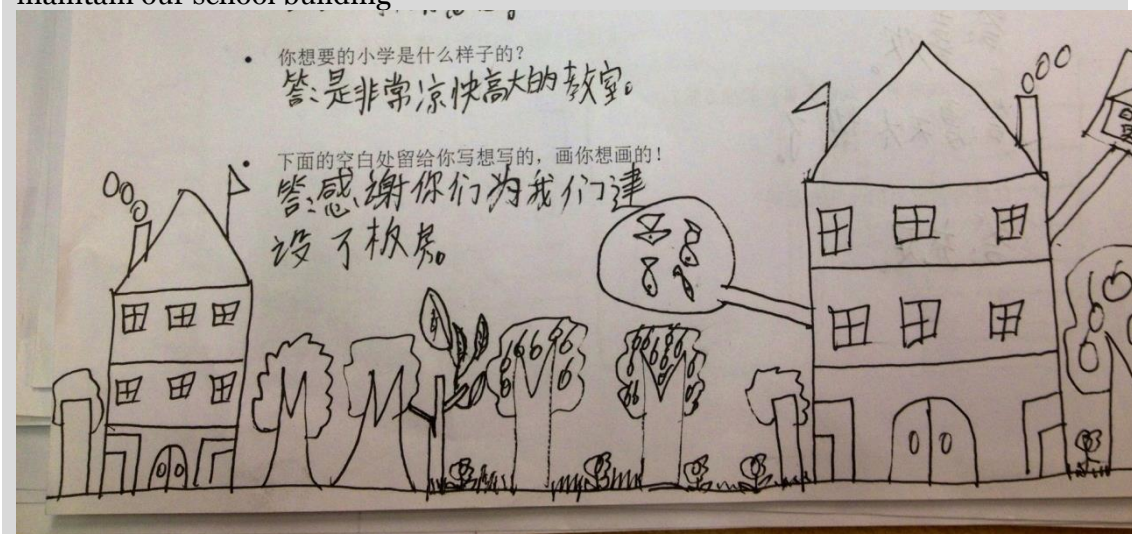 maintain our school building
• 你想要的小学是什么样子的?
答:是非常凉快高大的教室。
• 下面的空白处留给你写想写的,画你想画的!
答:感谢你们为我们建
设了板房。